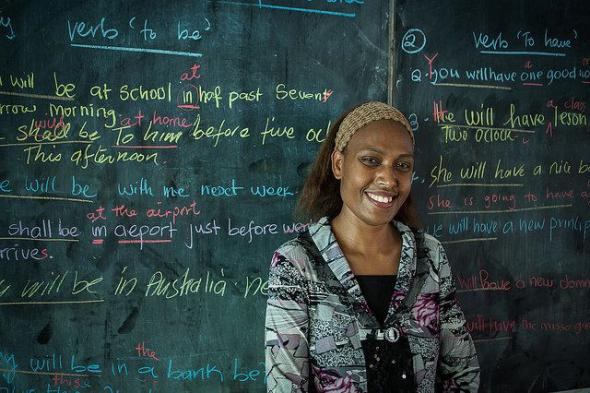 verb 'to be'
will be at school in haf past Seven
at
row morning
shall be To him before five o
will
at home
This afternoon.
will be with me next week.
at the airport
shall be in aeport just before wer
rrives.
will be in Australia ne
the
will be in a bank be
this
②
verb 'To have'
you will have one good
a
We will have leson
a class
Two oclock
she will have a nice b
She is going to have a
will have a new princip
will have a new
will have the